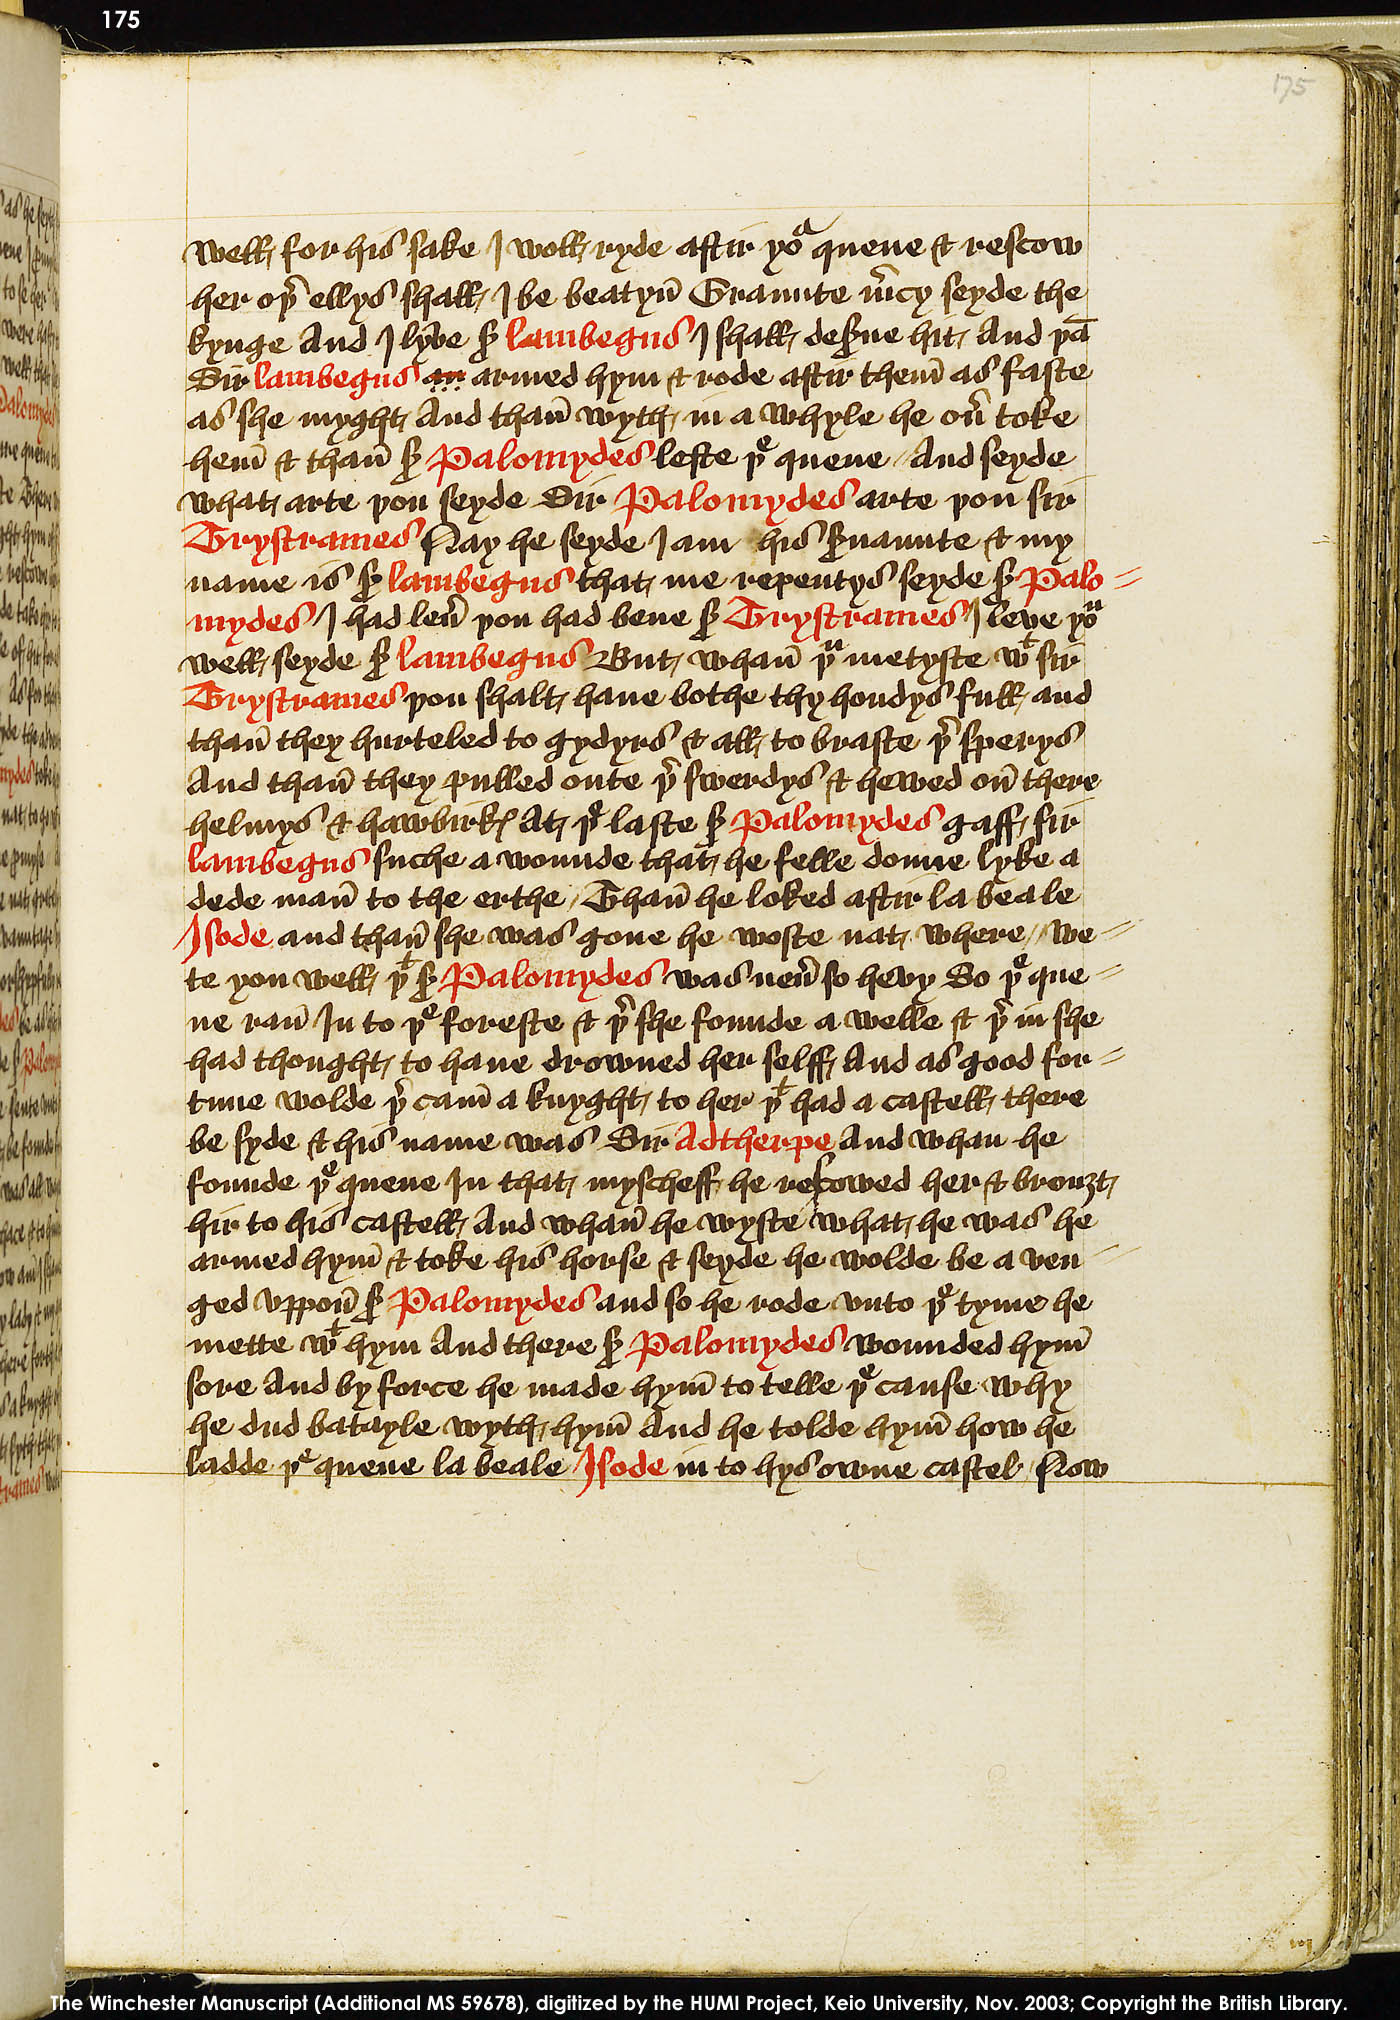 175
175
well for his sake I woll ryde aftir yoᵘ quene & rescow
her oþ̉ ellys shall I be beatyn̄ Graunte m̉cy seyde the
kynge And I lyve ẜ lambegus I shall deẜue hit And þā
Sir lambegus an armed hym & rode aftir them̄ as faste
as she myght And than̄ wyth in a whyle he oủ toke
hem̄ & than̄ ẜ Palomydes lefte þᵉ quene And seyde
what arte þou seyde Sir Palomydes arte þou sir
Trystrames Nay he seyde I am his ẜuaunte & my
name is ẜ lambegus that me repentys seyde ẜ Palo=
mydes I had leủ þou had bene ẜ Trystrames I leve yoᵘ
well seyde ẜ lambegus But whan̄ þᵘ metyste wᵗ sir
Trystrames þou shalt haue bothe thy hondys full and
than̄ they hurteled to gydyrs & all to braste þ̉ sperys
And than̄ they pulled oute þ̉ swerdys & hewed on̄ there
helmys & hawbirkꝭ At þᵉ laste ẜ Palomydes gaff sir
lambegus suche a wounde that he felle doune lyke a
dede man̄ to the erthe Than̄ he loked aftir la beale
Isode and than̄ she was gone he woste nat where we=
te you well þᵗ ẜ Palomydes was neủ so hevy So þᵉ que=
ne ran̄ In to þᵉ foreste & þ̉ she founde a welle & þ̉ in she
had thought to haue drowned her selff And as good for=
tune wolde þ̉ cam̄ a knyght to her þᵗ had a castell there
be syde & his name was Sir Adtherpe And whan he
founde þᵉ quene In that myscheff he rescowed her & brouȝt
hir to his castell And whan̄ he wyste what he was he
armed hym̄ & toke his horse & seyde he wolde be a ven=
ged vppon̄ ẜ Palomydes and so he rode vnto þᵉ tyme he
mette wᵗ hym And there ẜ Palomydes wounded hym̄
sore And by force he made hym̄ to telle þᵉ cause why
he dud batayle wyth hym̄ And he tolde hym̄ how he
ladde þᵉ quene la beale Isode in to hys owne castel Now
The Winchester Manuscript (Additional MS 59678), digitized by the HUMI Project, Keio University, Nov. 2003; Copyright the British Library.